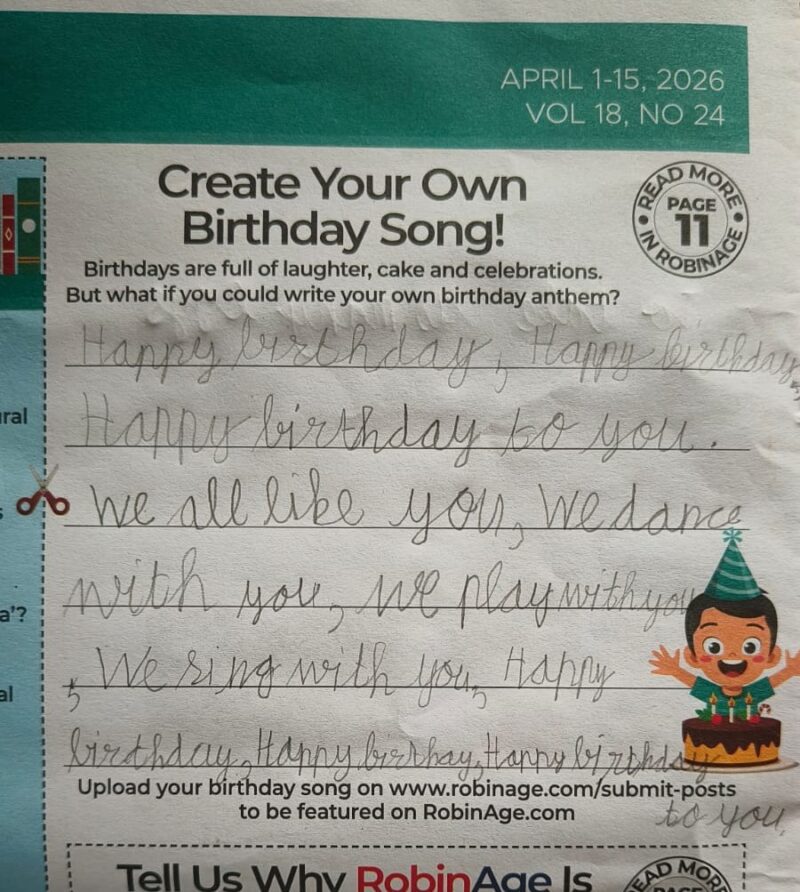 APRIL 1-15, 2026
VOL 18, NO 24
Create Your Own
Birthday Song!
READ MORE
PAGE
11
IN ROBINAGE
Birthdays are full of laughter, cake and celebrations.
But what if you could write your own birthday anthem?
Happy birthday, Happy birthday,
Happy birthday to you.
We all like you, We dance
with you, we play with you
, We sing with you, Happy
birthday, Happy birthay, Happy birthday
to you,
Upload your birthday song on www.robinage.com/submit-posts
to be featured on RobinAge.com
Tell Us Why RobinAge Is